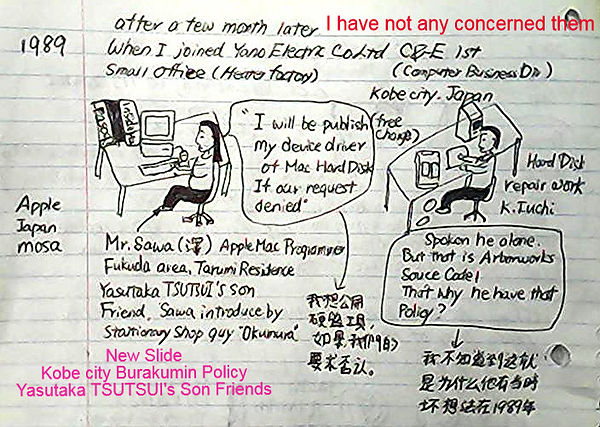 after a few month later
I have not any concerned them
1989
When I joined Yano Electric Co Ltd C&E 1st
Small office (Hearo factory)
(Computer Business Div)
Kobe city. Japan
"I will be publish (free
my device driver charge)
of Mac Hard Disk
If our request
denied"
Inside
Hard Disk
repair work
K.Iuchi
Apple
Japan
mosa
Mr. Sawa (澤) Apple Mac Programmer
Fukuda area, Tarumi Residence
Yasutaka TSUTSUI's Son
Friend. Sawa introduce by
Stationary Shop guy "Okumura"
我想公開
硬盤工具,
如果我們的
要求否认。
Spoken he alone.
But that is Arborworks
Souce Code!
That why he have that
Policy?
我不知道到这就
是为什么他有当时
坏想法在1989年
New Slide
Kobe city Burakumin Policy
Yasutaka TSUTSUI's Son Friends